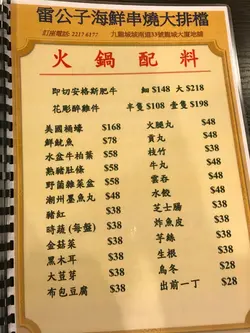 雷公子海鮮串燒大排檔
訂座電話: 2217 6177
九龍城城南道33號龍城大廈地舖
火鍋配料
即切安格斯肥牛 細$148 大$218
花彫醉雞件 半隻$108 壹隻$198
美國桶蠔 $168
鮮魷魚 $78
水盆牛柏葉 $58
熟豬肚條 $58
野菌雜菜盆 $58
潮州墨魚丸 $48
豬紅 $38
時蔬 (每盤) $38
金菇菜 $38
黑木耳 $38
大荳芽 $38
布包豆腐 $38
火腿丸 $48
貢丸 $48
黃丸 $48
枝竹 $38
牛丸 $48
雲吞 $48
水餃 $48
芝士腸 $38
炸魚皮 $38
芋絲 $38
生根 $38
烏冬 $28
出前一丁 $28